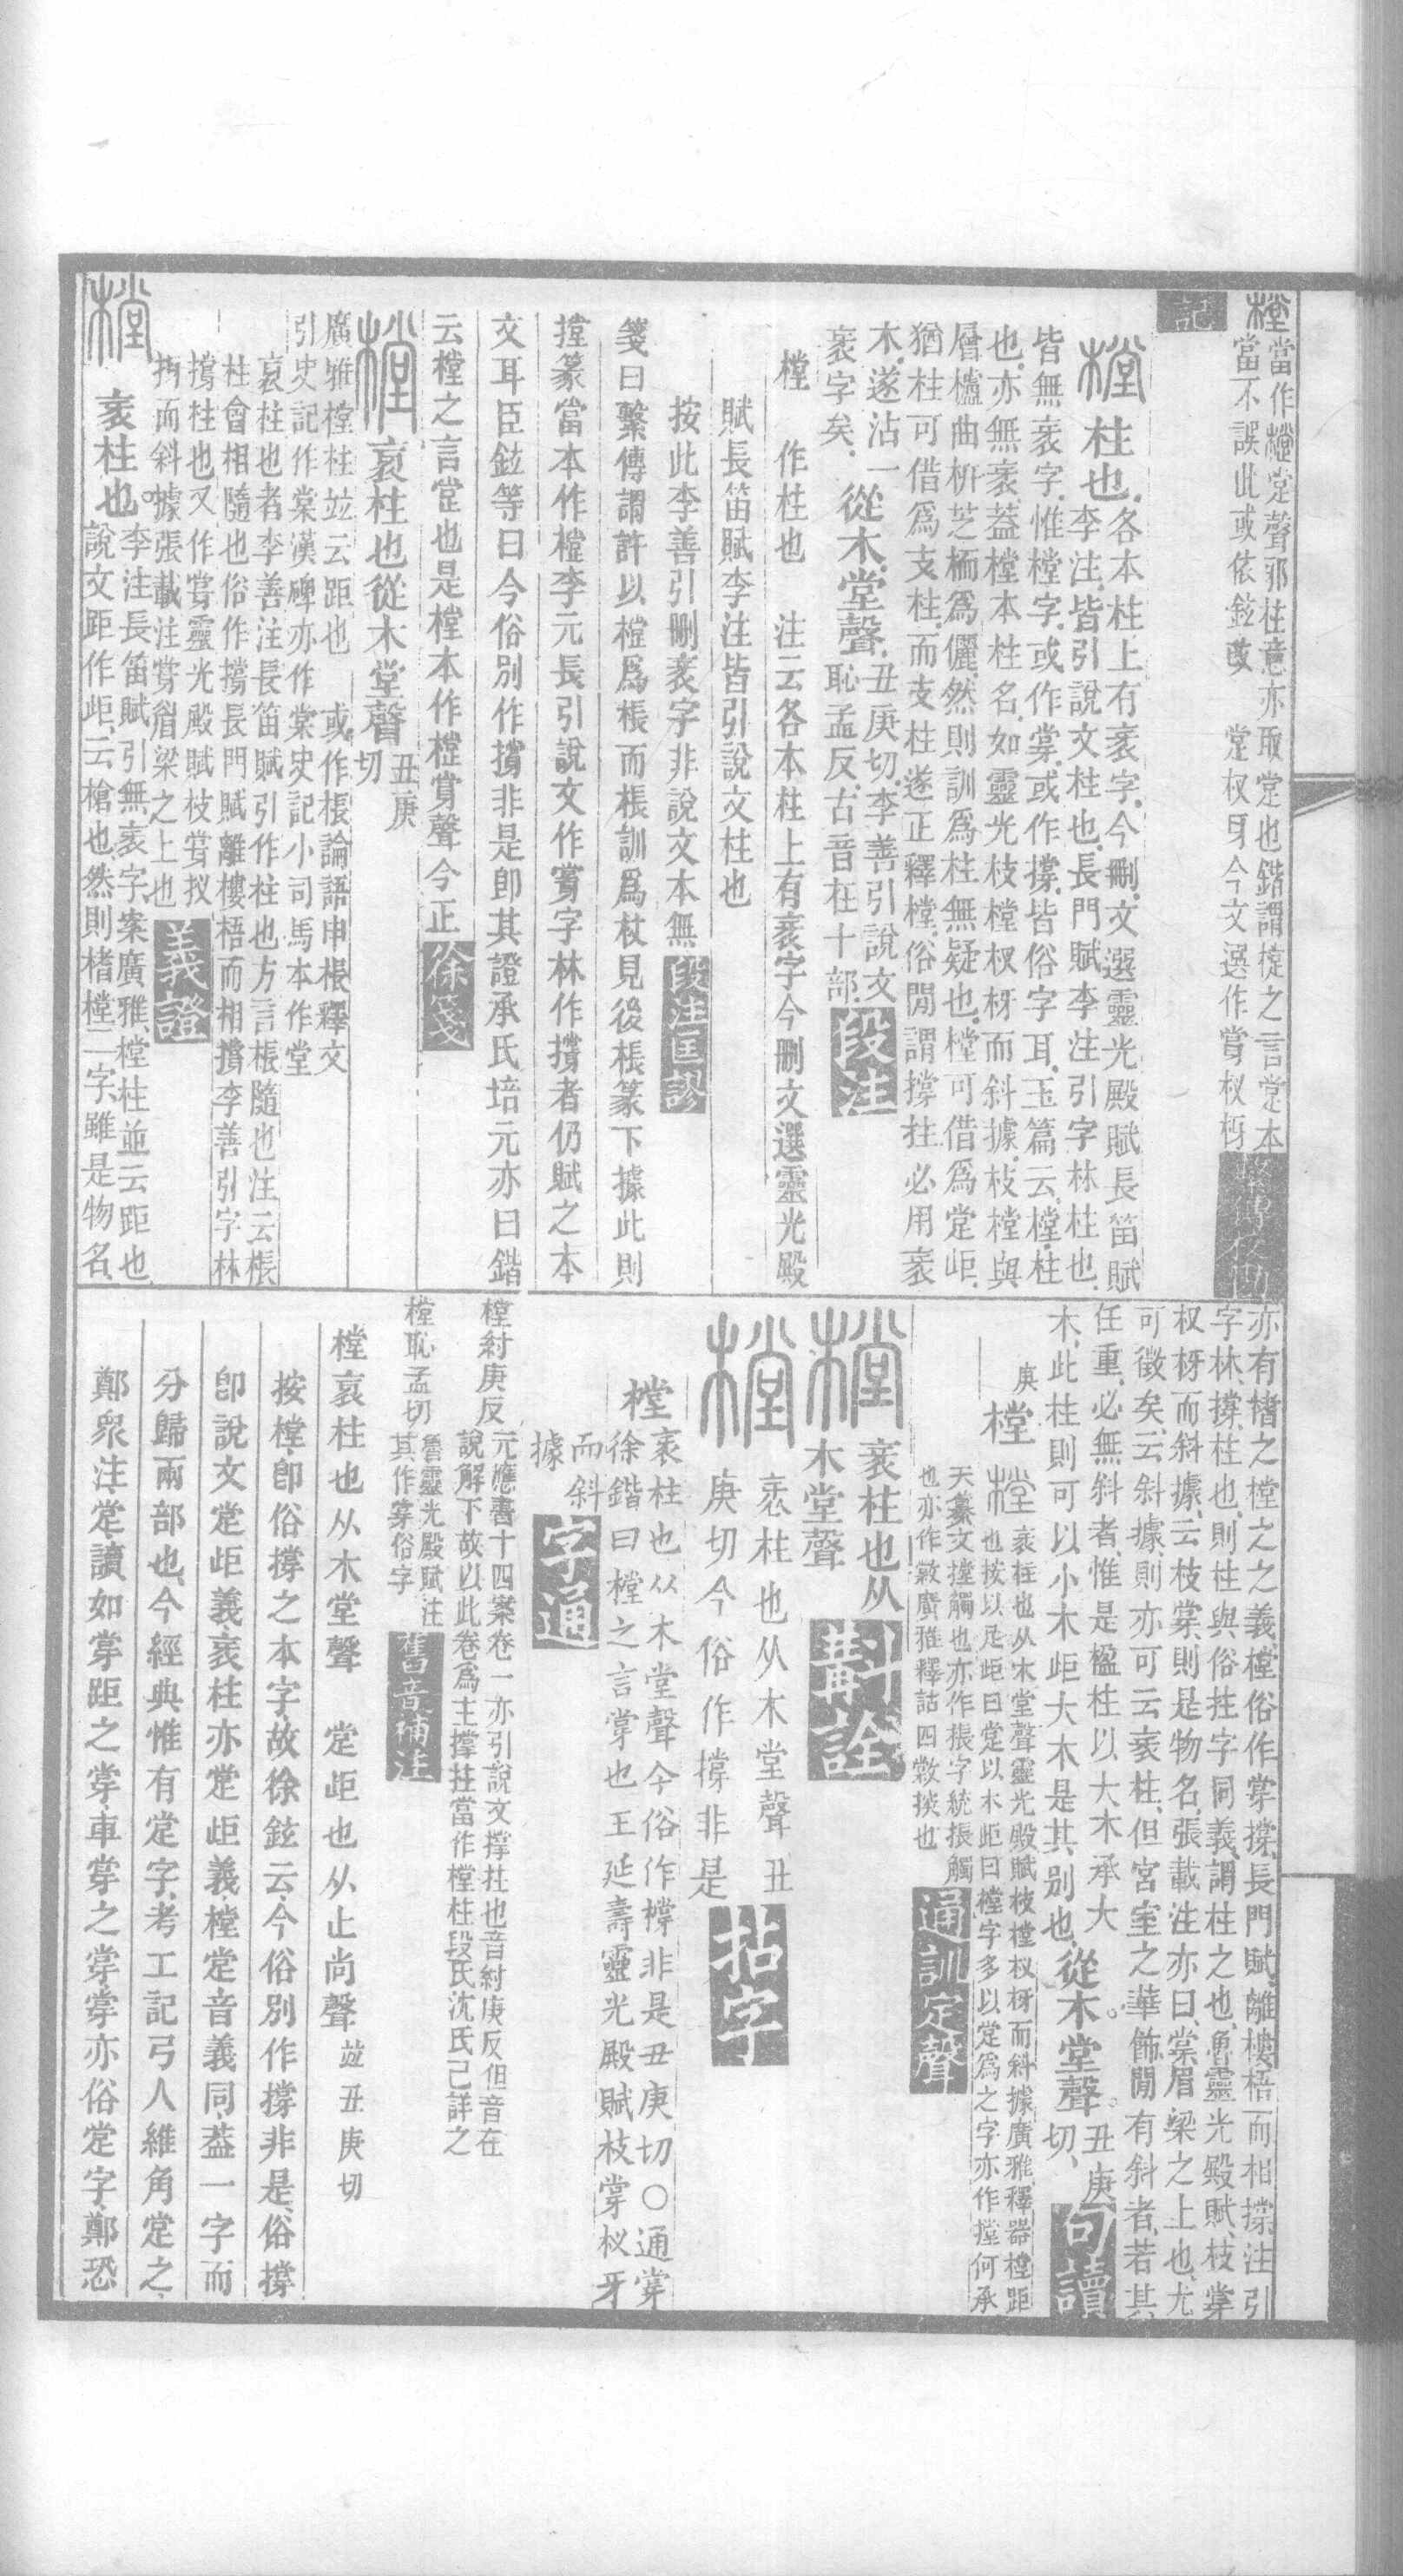 樘當作樘定聲邪柱意亦取定也鍇謂樘之言定本
當不誤此或依鉉改 定杈牙今文選作牚杈枒
記
樘
柱也各本柱上有衺字今刪文選靈光殿賦長笛賦
李注皆引說文柱也長門賦李注引字林柱也
皆無衺字惟樘字或作牚或作撐皆俗字耳玉篇云樘柱
也亦無衺葢樘本柱名如靈光枝樘杈枒而斜據枝樘與
層櫨曲枅芝栭爲儷然則訓爲柱無疑也樘可借爲定歫
猶柱可借爲支柱而支柱遂正釋樘俗閒謂撐拄必用衺
木遂沾一
衺字矣
從木堂聲
丑庚切李善引說文
恥孟反古音在十部
段注
樘 作柱也 注云各本柱上有衺字今刪文選靈光殿
賦長笛賦李注皆引說文柱也
按此李善引刪衺字非說文本無
段注匡謬
箋曰繫傳謂許以樘爲棖而棖訓爲杖見後棖篆下據此則
文耳臣鉉等曰今俗別作撐非是卽其證承氏培元亦曰鍇
云樘之言定也是樘本作樘牚聲今正
徐箋
樘
衺柱也從木堂聲
丑庚
切
廣雅樘柱竝云距也 或作棖論語申棖釋文
引史記作棠漢碑亦作棠史記小司馬本作堂
衺柱也者李善注長笛賦引作柱也方言棖隨也注云棖
柱會相隨也俗作撐長門賦離樓梧而相撐李善引字林
撐柱也又作牚靈光殿賦枝牚杈
枒而斜據張載注牚眉梁之上也
義證
樘
衺柱也
李注長笛賦引無衺字案廣雅樘柱並云距也
說文距作歫云槍也然則楮樘二字雖是物名
亦有楮之樘之之義樘俗作牚撐長門賦離樓梧而相撐注引
字林撐柱也則柱與俗拄字同義謂柱之也魯靈光殿賦枝牚
杈枒而斜據云枝棠則是物名張載注亦曰棠眉梁之上也尤
可徵矣云斜據則亦可云衺柱但宮室之華飾閒有斜者若其
任重必無斜者惟是楹柱以大木承大
木此柱則可以小木歫大木是其別也
從木堂聲
丑庚
切
句讀
樘
衺柱也从木堂聲靈光殿賦枝樘杈枒而斜據廣雅釋器樘距
也按以足歫曰定以木歫曰樘字多以定爲之字亦作撐何承
天纂文撐觸也亦作振字統振觸
也亦作敹廣雅釋詁四敹掞也
通訓定聲
樘
衺柱也从
木堂聲
斠詮
樘
衺柱也从木堂聲丑
庚切今俗作撐非是
拈字
樘
衺柱也从木堂聲今俗作撐非是丑庚切○通牚
徐鍇曰樘之言牚也王延壽靈光殿賦枝牚杈牙
而斜
據
字通
樘紂庚反
元應書十四案卷一亦引說文撐拄也音紂庚反但音在
說解下故以此卷爲主撐拄當作樘柱段氏沈氏已詳之
樘恥孟切
魯靈光殿賦注
其作牚俗字
舊音補注
樘衺柱也从木堂聲 定歫也从止尚聲 竝丑庚切
按樘卽俗撐之本字故徐鉉云今俗別作撐非是俗撐
卽說文定歫義衺柱亦定歫義樘定音義同葢一字而
分歸兩部也今經典惟有定字考工記弓人維角定之
鄭眾注定讀如牚距之牚車牚之牚牚亦俗定字鄭恐